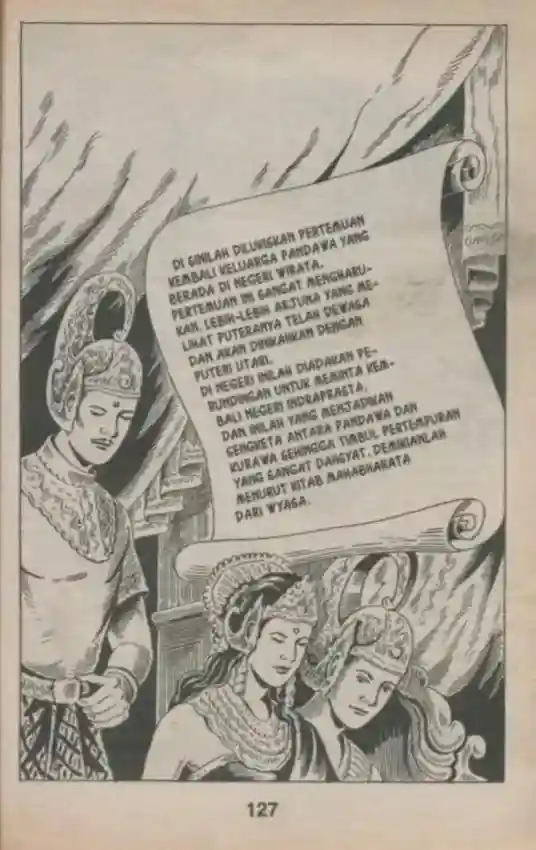 DI SINILAH DILUKISKAN PERTEMUAN
KEMBALI KELUARGA PANDAWA YANG
BERADA DI NEGERI WIRATA.
PERTEMUAN INI SANGAT MENGHARU-
KAN. LEBIH-LEBIH ARJUNA YANG ME-
LIHAT PUTERANYA TELAH DEWASA
DAN AKAN DINIKAHKAN DENGAN
PUTERI UTARI.
DI NEGERI INILAH DIADAKAN PE-
RUNDINGAN UNTUK MEMINTA KEM-
BALI NEGERI INDRAPRASTA.
DAN INILAH YANG MENJADIKAN
SENGKETA ANTARA PANDAWA DAN
KURAWA SEHINGGA TIMBUL PERTEMPURAN
YANG SANGAT DAHSYAT. DEMIKIANLAH
MENURUT KITAB MAHABHARATA
DARI WYASA.
127